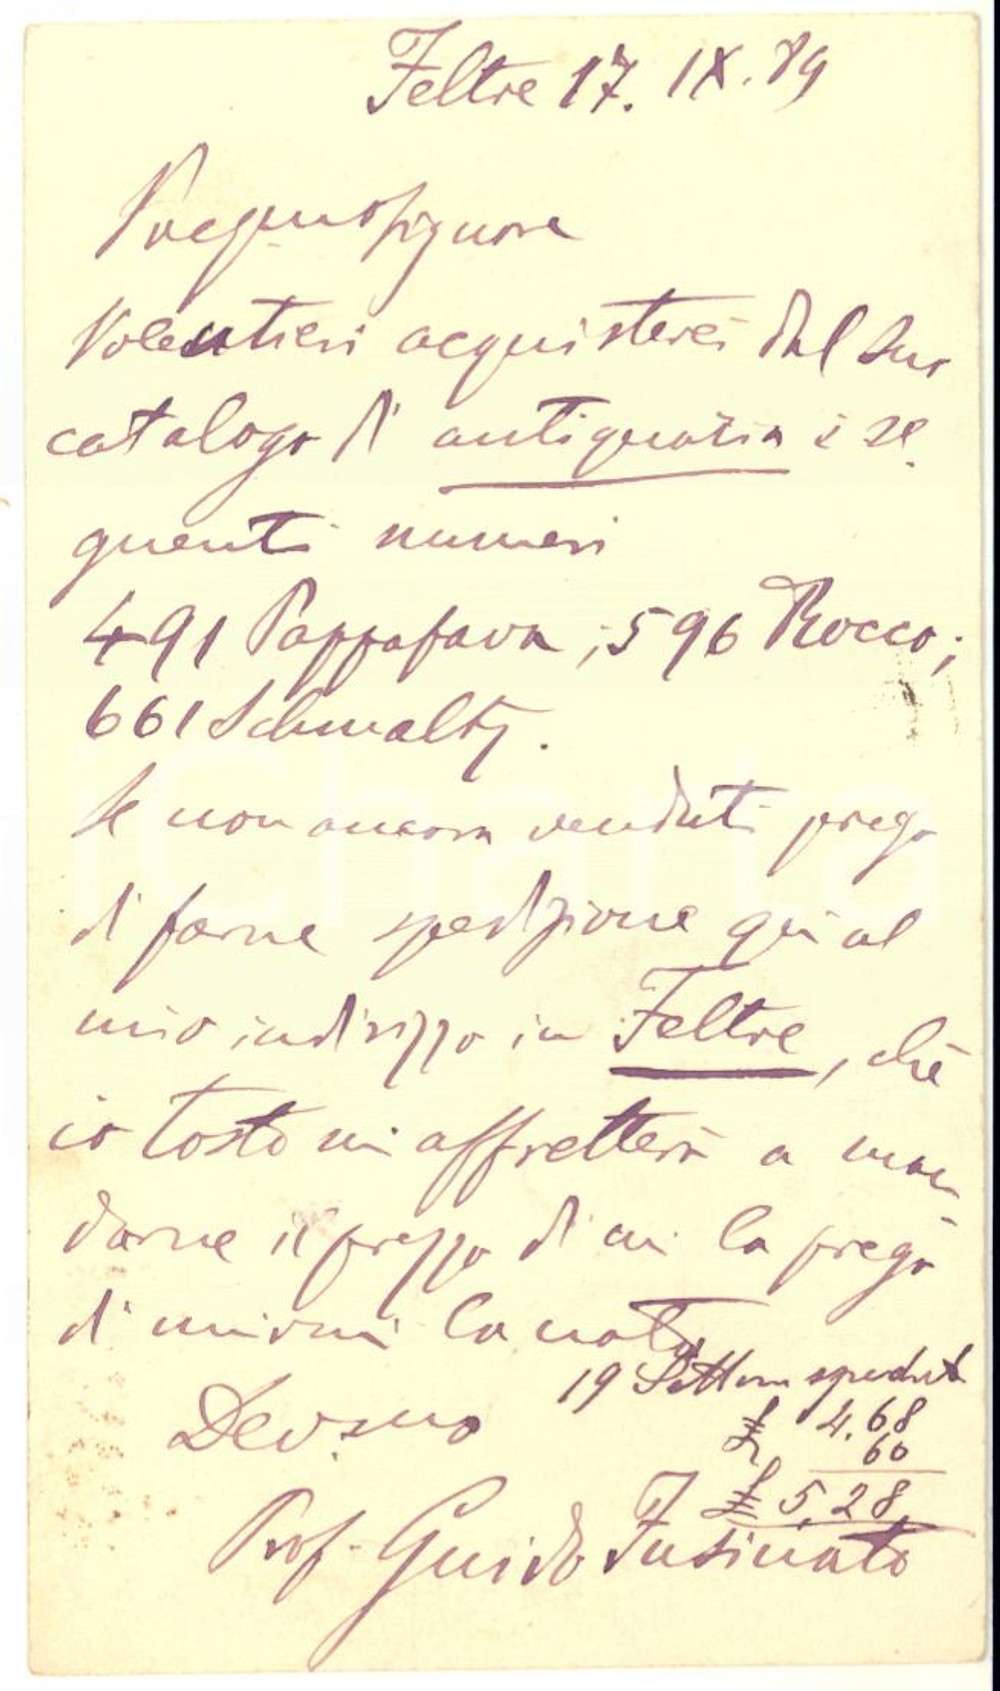 Feltre 17. IX. 89
Pregmo Signore
Volentieri acquisterei dal Suo
catalogo di antiquaria i se
guenti numeri
491 Pappafava ; 596 Rocco ;
661 Schmaltz.
Se non ancora venduti prego
di farne spedizione qui al
mio indirizzo in Feltre, chè
io tosto mi affretterò a man
darne il prezzo di cui la prego
di unirmi la nota
19 Settem spedito
£ 4,68
60
£ 5,28
Dev.smo
Prof. Guido Fusinato